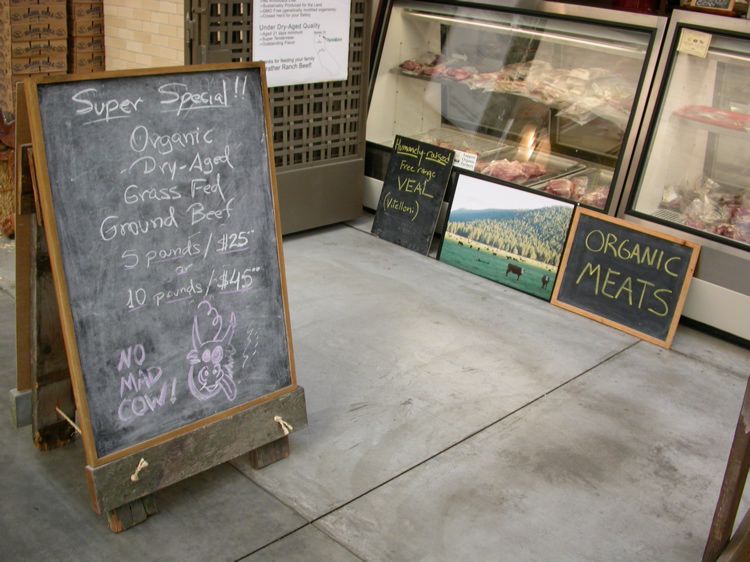 Super Special!!
Organic
Dry-Aged
Grass Fed
Ground Beef
5 pounds/$25.00
or
10 pounds/$45.00
NO
MAD
COW!
Sustainably Produced for the Land
GMO Free (genetically modified organisms)
Under Dry-Aged Quality
Aged 21 days minimum
Super Tenderness
Outstanding Flavor
Thanks for feeding your family
Prather Ranch Beef!
Humanely-raised
Free range
VEAL
(Vitellon.)
ORGANIC
MEATS